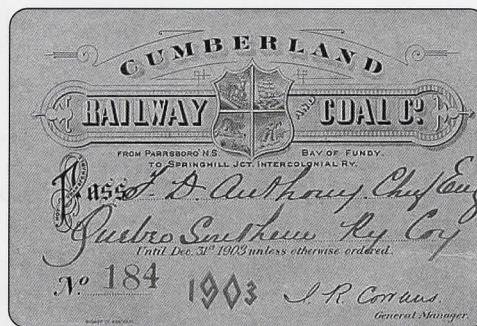 CUMBERLAND
RAILWAY AND COAL Co.
FROM PARRSBORO' N.S. BAY OF FUNDY.
TO SPRINGHILL JCT. INTERCOLONIAL RY.
Pass F. D. Anthony Chf Eng
Quebec Southern Ry Coy
Until Dec. 31st 1903 unless otherwise ordered.
No 184 1903 J. R. Cowans.
General Manager.